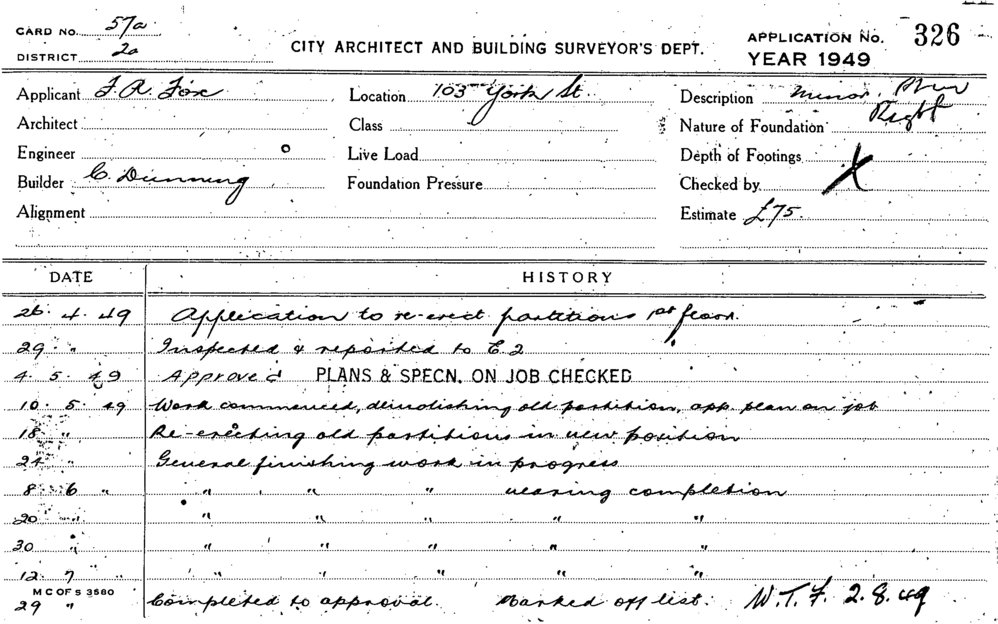 CARD NO. 57a
DISTRICT 2a
CITY ARCHITECT AND BUILDING SURVEYOR'S DEPT.
APPLICATION NO. 326
YEAR 1949
Applicant F. R. Fox
Architect
Engineer
Builder C. Dunning
Alignment
Location 103 York St.
Class
Live Load
Foundation Pressure
Description Minor.
Nature of Foundation
Depth of Footings
Checked by
Estimate £75.
DATE HISTORY
26. 4. 49 Application to re-erect partitions 1st floor.
29 " Inspected & reported to E.2
4. 5. 49 Approved PLANS & SPECN. ON JOB CHECKED
10. 5. 49 Work commenced, demolishing old partition, app plan on job
18 " Re-erecting old partitions in new position
24 " General finishing work in progress
8 6 " " " " nearing completion
20 " " " " " "
30 " " " " " "
12. 7 " " " " " "
M C OF S 3580
29 " Completed to approval. Marked off list. W.T.F. 2.8.49